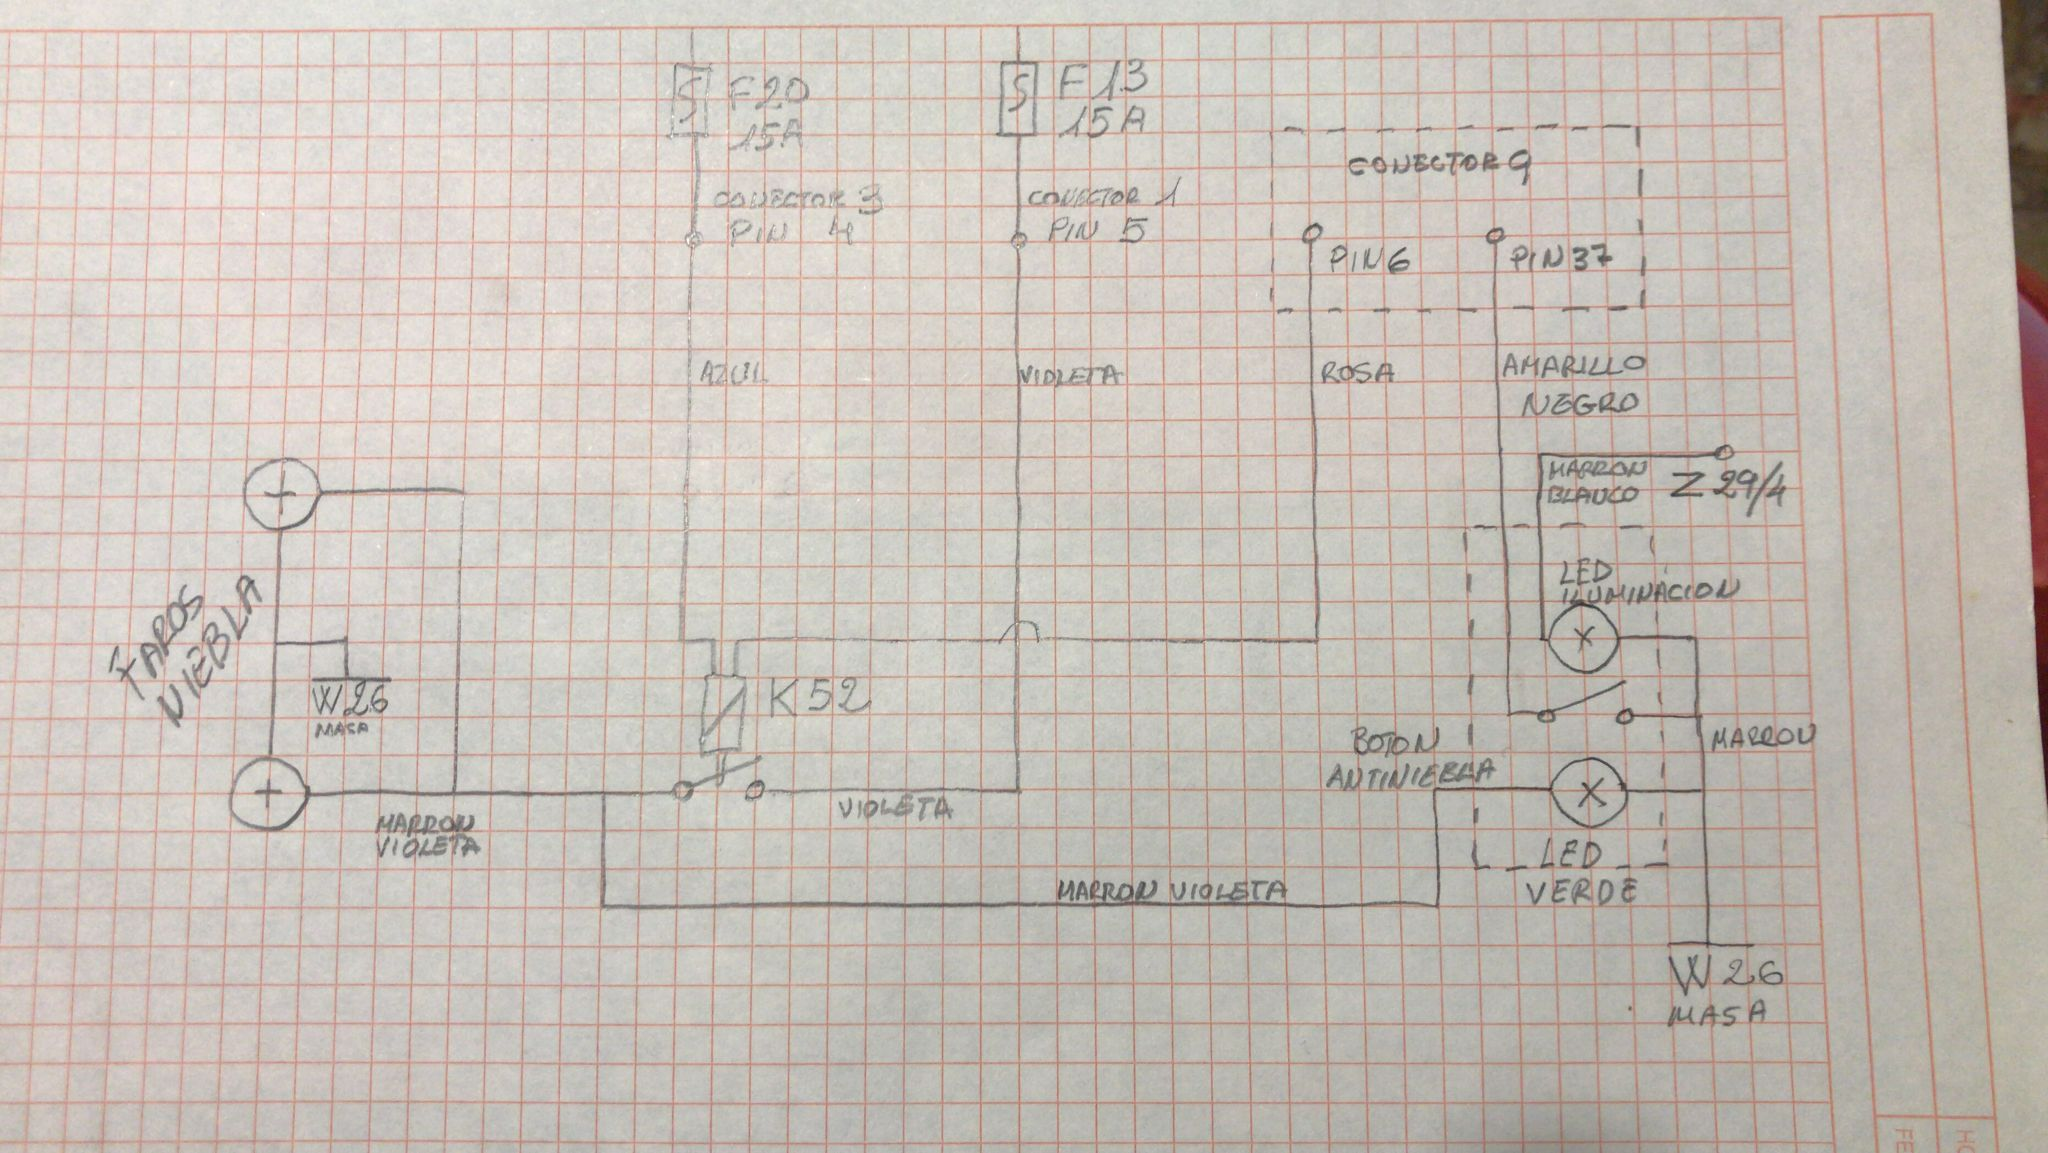 F20
15A
F13
15A
CONECTOR 9
CONECTOR 3
PIN 4
CONECTOR 1
PIN 5
PIN6
PIN37
AZUL
VIOLETA
ROSA
AMARILLO
NEGRO
MARRON
BLANCO
Z 29/4
LED
ILUMINACION
FAROS
NIEBLA
W26
MASA
K52
BOTON
ANTINIEBLA
MARRON
VIOLETA
MARRON
VIOLETA
LED
VERDE
MARRON VIOLETA
W26
MASA